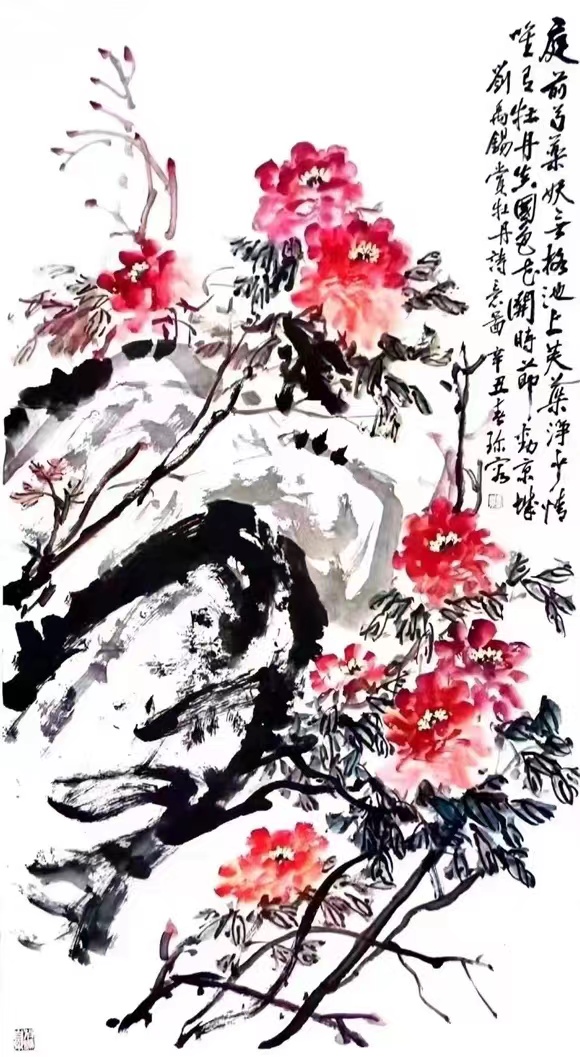 庭前芍藥妖無格池上芙蕖淨少情
唯有牡丹真國色花開時節動京城
劉禹錫賞牡丹詩意圖 辛丑春